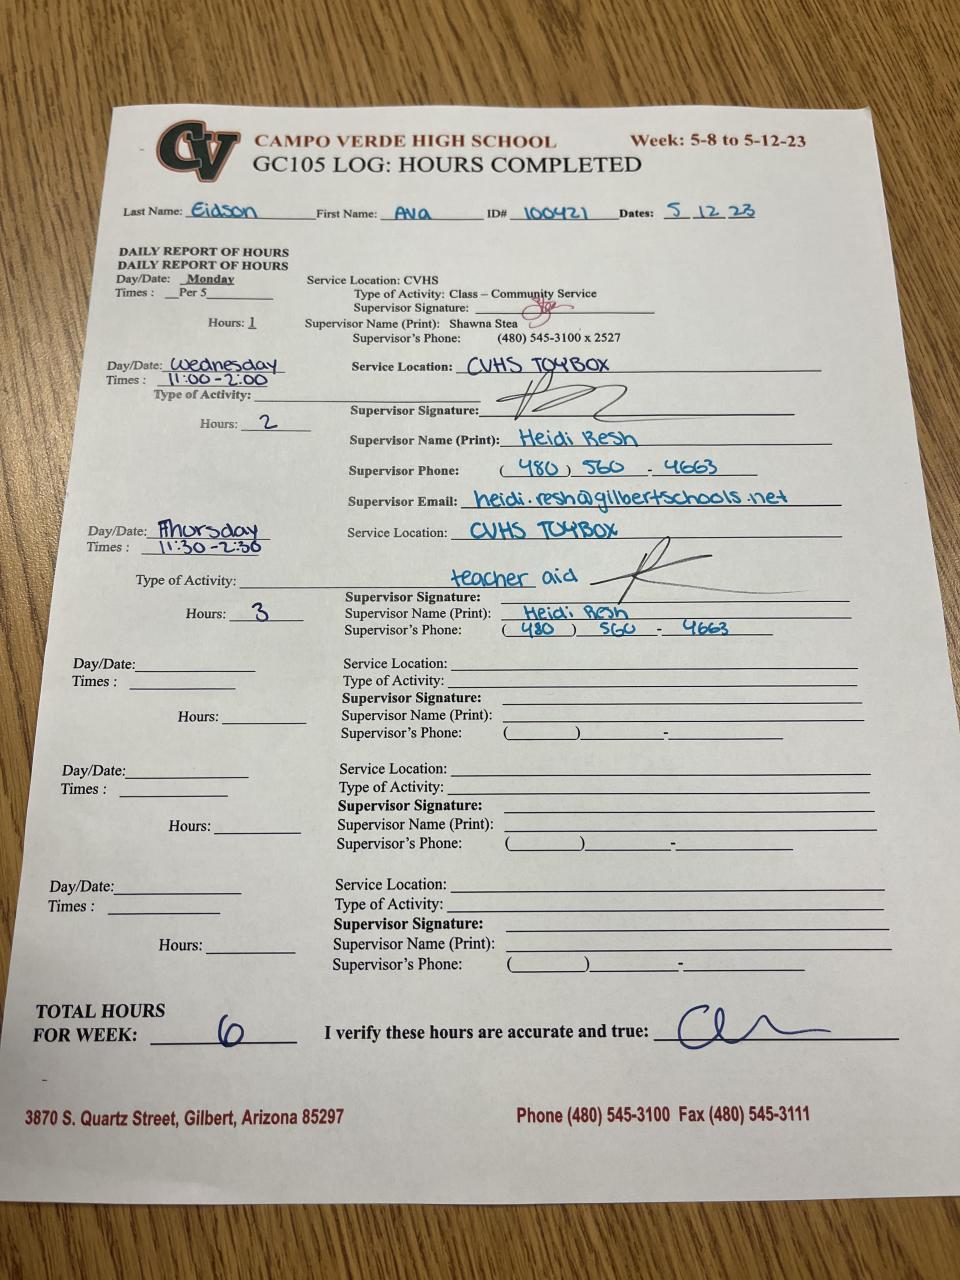 CV CAMPO VERDE HIGH SCHOOL Week: 5-8 to 5-12-23
GC105 LOG: HOURS COMPLETED
Last Name: Eidson First Name: Ava ID# 100421 Dates: 5 12 23
DAILY REPORT OF HOURS
DAILY REPORT OF HOURS
Day/Date: Monday Service Location: CVHS
Times : Per 5 Type of Activity: Class – Community Service
Supervisor Signature:
Hours: 1 Supervisor Name (Print): Shawna Stea
Supervisor's Phone: (480) 545-3100 x 2527
Day/Date: Wednesday Service Location: CVHS TOYBOX
Times : 11:00-2:00
Type of Activity:
Supervisor Signature:
Hours: 2
Supervisor Name (Print): Heidi Resh
Supervisor Phone: (480) 560 - 4663
Supervisor Email: heidi.resh@gilbertschools.net
Day/Date: Thursday Service Location: CVHS TOYBOX
Times : 11:30-2:30
Type of Activity: teacher aid
Supervisor Signature:
Hours: 3 Supervisor Name (Print): Heidi Resh
Supervisor's Phone: (480) 560 - 4663
Day/Date: Service Location:
Times : Type of Activity:
Supervisor Signature:
Hours: Supervisor Name (Print):
Supervisor's Phone: ( ) -
Day/Date: Service Location:
Times : Type of Activity:
Supervisor Signature:
Hours: Supervisor Name (Print):
Supervisor's Phone: ( ) -
Day/Date: Service Location:
Times : Type of Activity:
Supervisor Signature:
Hours: Supervisor Name (Print):
Supervisor's Phone: ( ) -
TOTAL HOURS
FOR WEEK: 6 I verify these hours are accurate and true:
3870 S. Quartz Street, Gilbert, Arizona 85297 Phone (480) 545-3100 Fax (480) 545-3111